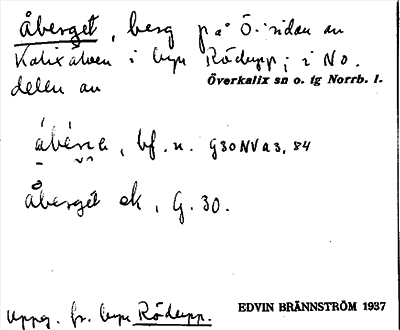 Åberget, berg på Ö. sidan av
Kalixälven i byn Rödupp; i NO.
delen av Överkalix sn o. tg Norrb. l.
bf. n. G30NVa3, 84
Åberget ek, G. 30.
Uppg. fr. byn Rödupp.
EDVIN BRÄNNSTRÖM 1937